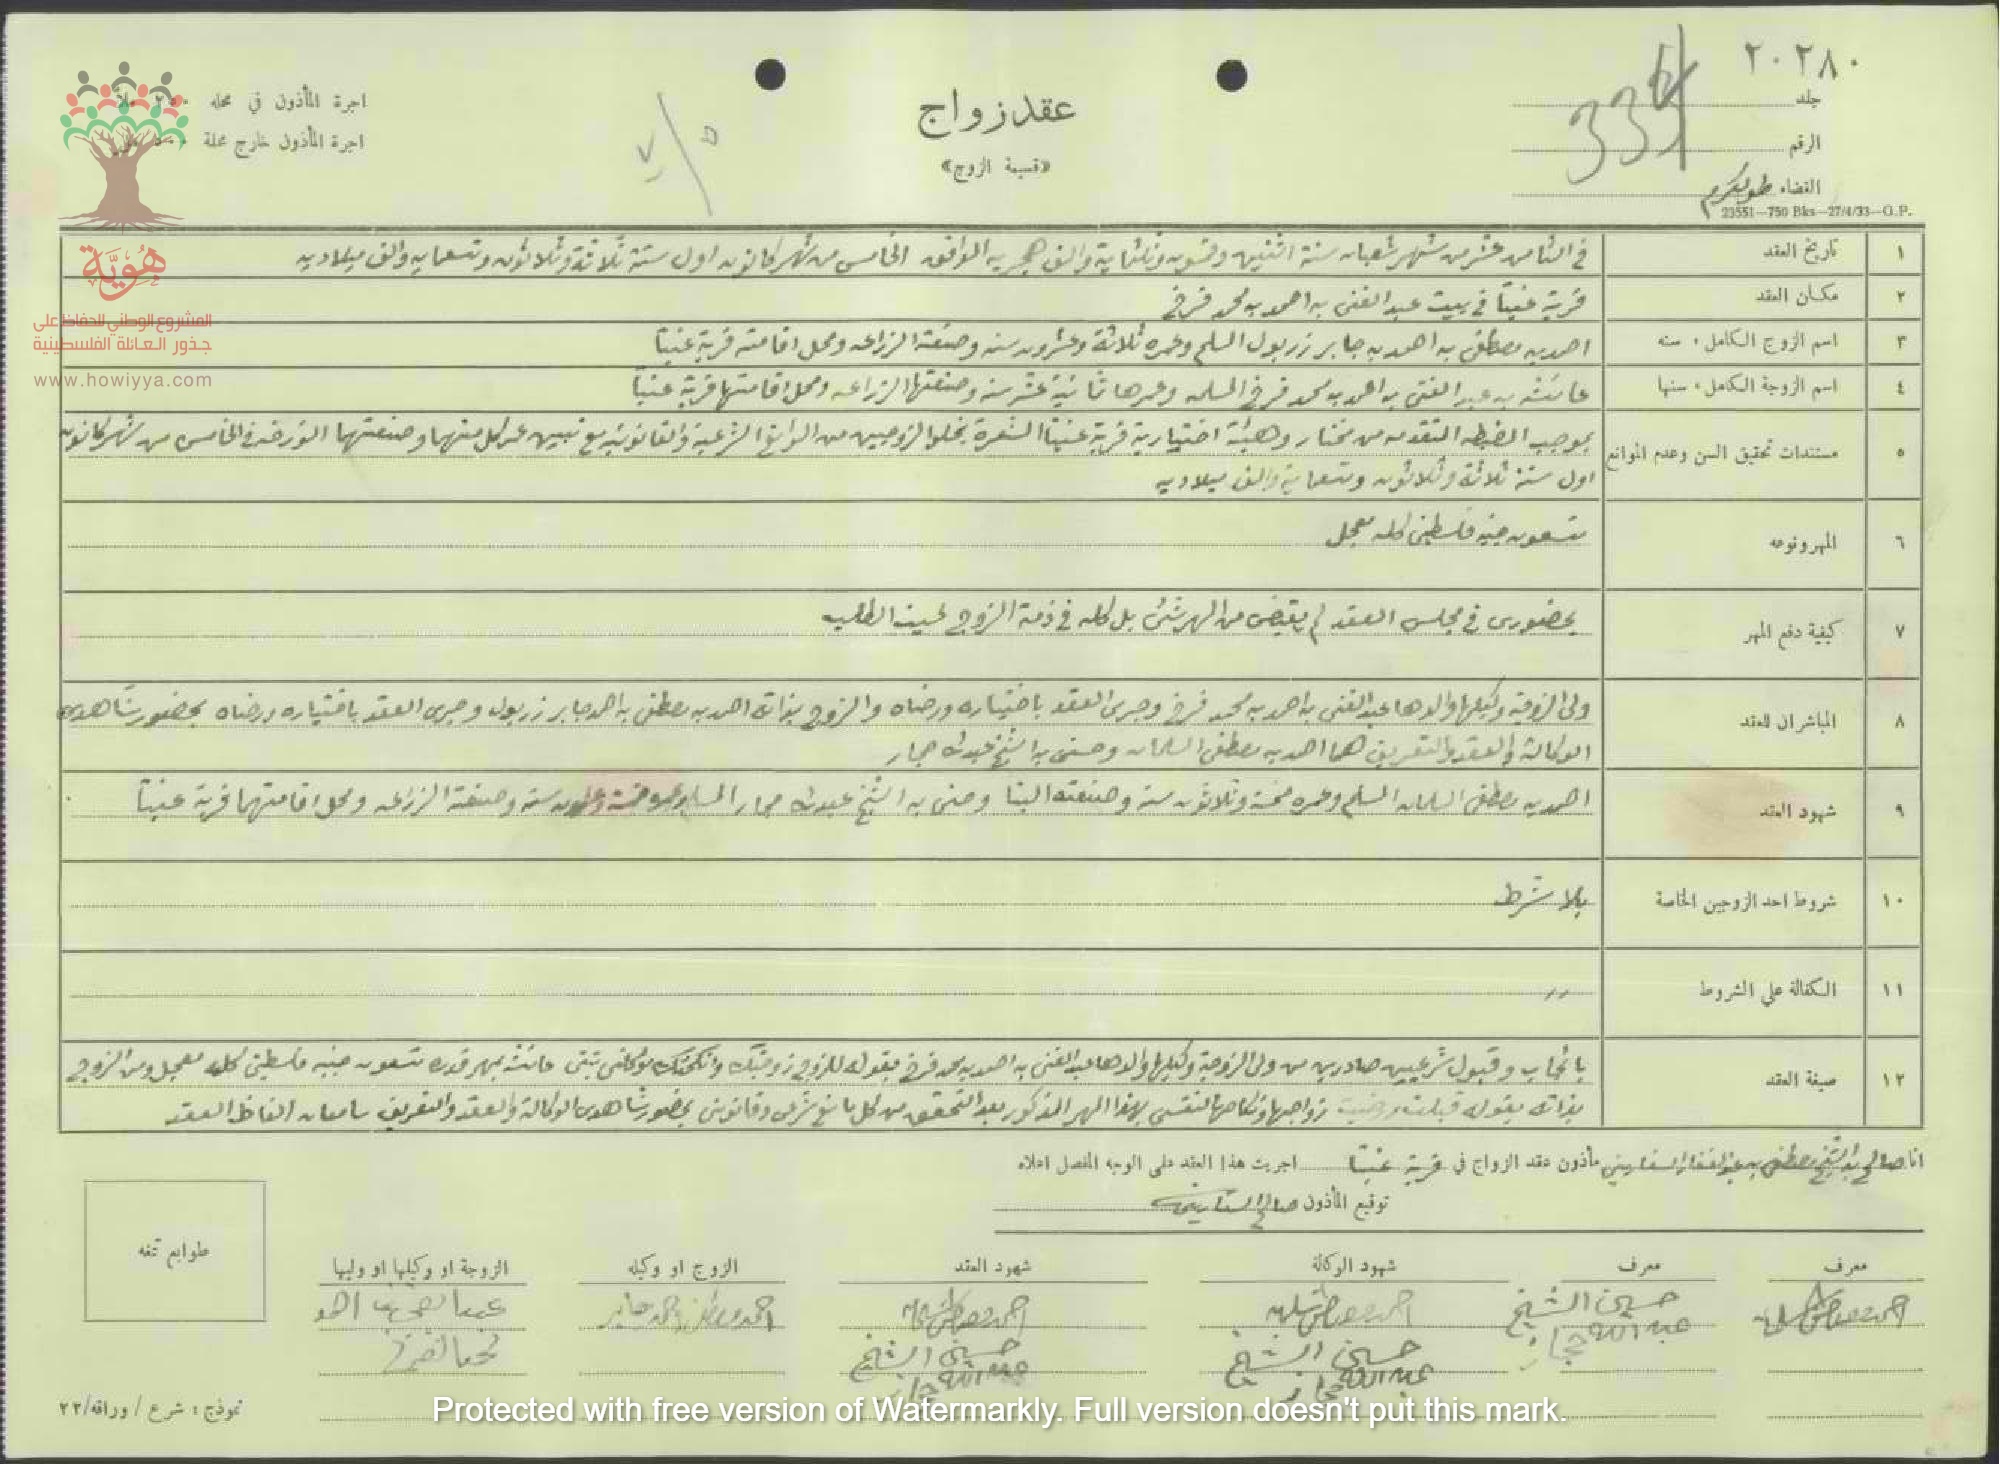 ٢٠٢٨٠
جلد
334
الرقم
القضاء طولكرم
23551—750 Bks—27/4/33—G.P.
عقد زواج
«قسيمة الزوج»
٧/٥
اجرة المأذون في محله ٢٥٠ ملاً
اجرة المأذون خارج محلة ٥٠٠
هُويَّة
المشروع الوطني للحفاظ على
جذور العائلة الفلسطينية
www.howiyya.com
١ تاريخ العقد في الثامن عشر من شهر شعبان سنة اثنتين وخمسون وثلثماية والف هجريه الموافق الخامس من شهر كانون اول سنة ثلاثة وثلاثون وتسعمايه والف ميلاديه
٢ مكان العقد قرية عنبتا في بيت عبد الغني بن احمد بن محمد فرخ
٣ اسم الزوج الكامل، سنه احمد بن مصطفى بن احمد بن جابر زربول المسلم وعمره ثلاثة وعشرون سنه وصنعته الزراعه ومحل اقامته قرية عنبتا
٤ اسم الزوجة الكامل، سنها عائشه بنت عبد الغني بن احمد بن محمد فرخ المسلمه وعمرها ثمانية عشر سنه وصنعتها الزراعه ومحل اقامتها قرية عنبتا
٥ مستندات تحقيق السن وعدم الموانع بموجب المضبطه المتقدمه من مختار وهيئة اختيارية قرية عنبتا المشعرة بخلو الزوجين من الموانع الشرعية والقانونيه مع تبيين عمر كل منهما وصنعتهما المؤرخه في الخامس من شهر كانون
اول سنة ثلاثة وثلاثون وتسعماية والف ميلاديه
٦ المهر ونوعه تسعون جنيه فلسطيني كله معجل
٧ كيفية دفع المهر بحضوري في مجلس العقد لم يقبض من المهر شئ بل كله في ذمة الزوج لحين الطلب
٨ المباشران للعقد ولي الزوجة وكيلها والدها عبد الغني بن احمد بن محمد فرخ وجرى العقد باختياره ورضاه والزوج بذاته احمد بن مصطفى بن احمد جابر زربول وجرى العقد باختياره ورضاه بحضور شاهدي
الوكالة والعقد والتعريف هما احمد بن مصطفى السلمان وحسني بن الشيخ عبد الله حجاز
٩ شهود العقد احمد بن مصطفى السلمان المسلم وعمره خمسة وثلاثون سنة وصنعته البنا وحسني بن الشيخ عبد الله حجاز المسلم وعمره خمسة سنة وصنعته الزراعه ومحل اقامتهما قرية عنبتا
١٠ شروط احد الزوجين الخاصة بلا شرط
١١ الكفالة على الشروط ,,
١٢ صيغة العقد بايجاب وقبول شرعيين صادرين من ولي الزوجة وكيلها والدها عبد الغني بن احمد بن محمد فرخ بقوله للزوج زوجتك وانكحتك موكلتي بنتي عائشه بمهر قدره تسعون جنيه فلسطيني كله معجل ومن الزوج
بذاته بقوله قبلت ورضيت زواجها ونكاحها لنفسي بهذا المهر المذكور بعد التحقق من كل مانع شرعي وقانوني بحضور شاهدي الوكالة والعقد والتعريف سامعان الفاظ العقد
انا صالح بن الشيخ مصطفى بن عبد الغفار السفاريني مأذون عقد الزواج في قرية عنبتا اجريت هذا العقد على الوجه المفصل اعلاه
توقيع المأذون صالح السفاريني
معرف
احمد مصطفى سلمان
معرف
حسني الشيخ
عبد الله حجاز
شهود الوكالة
احمد مصطفى سلمان
حسني الشيخ
عبد الله حجاز
شهود العقد
احمد مصطفى سلمان
حسني الشيخ
عبد الله حجاز
الزوج او وكيله
احمد مصطفى احمد جابر
الزوجة او وكيلها او وليها
عبد الغني احمد
محمد الفرخ
طوابع تمغه
نموذج: شرع / وراقه/٢٢
Protected with free version of Watermarkly. Full version doesn't put this mark.